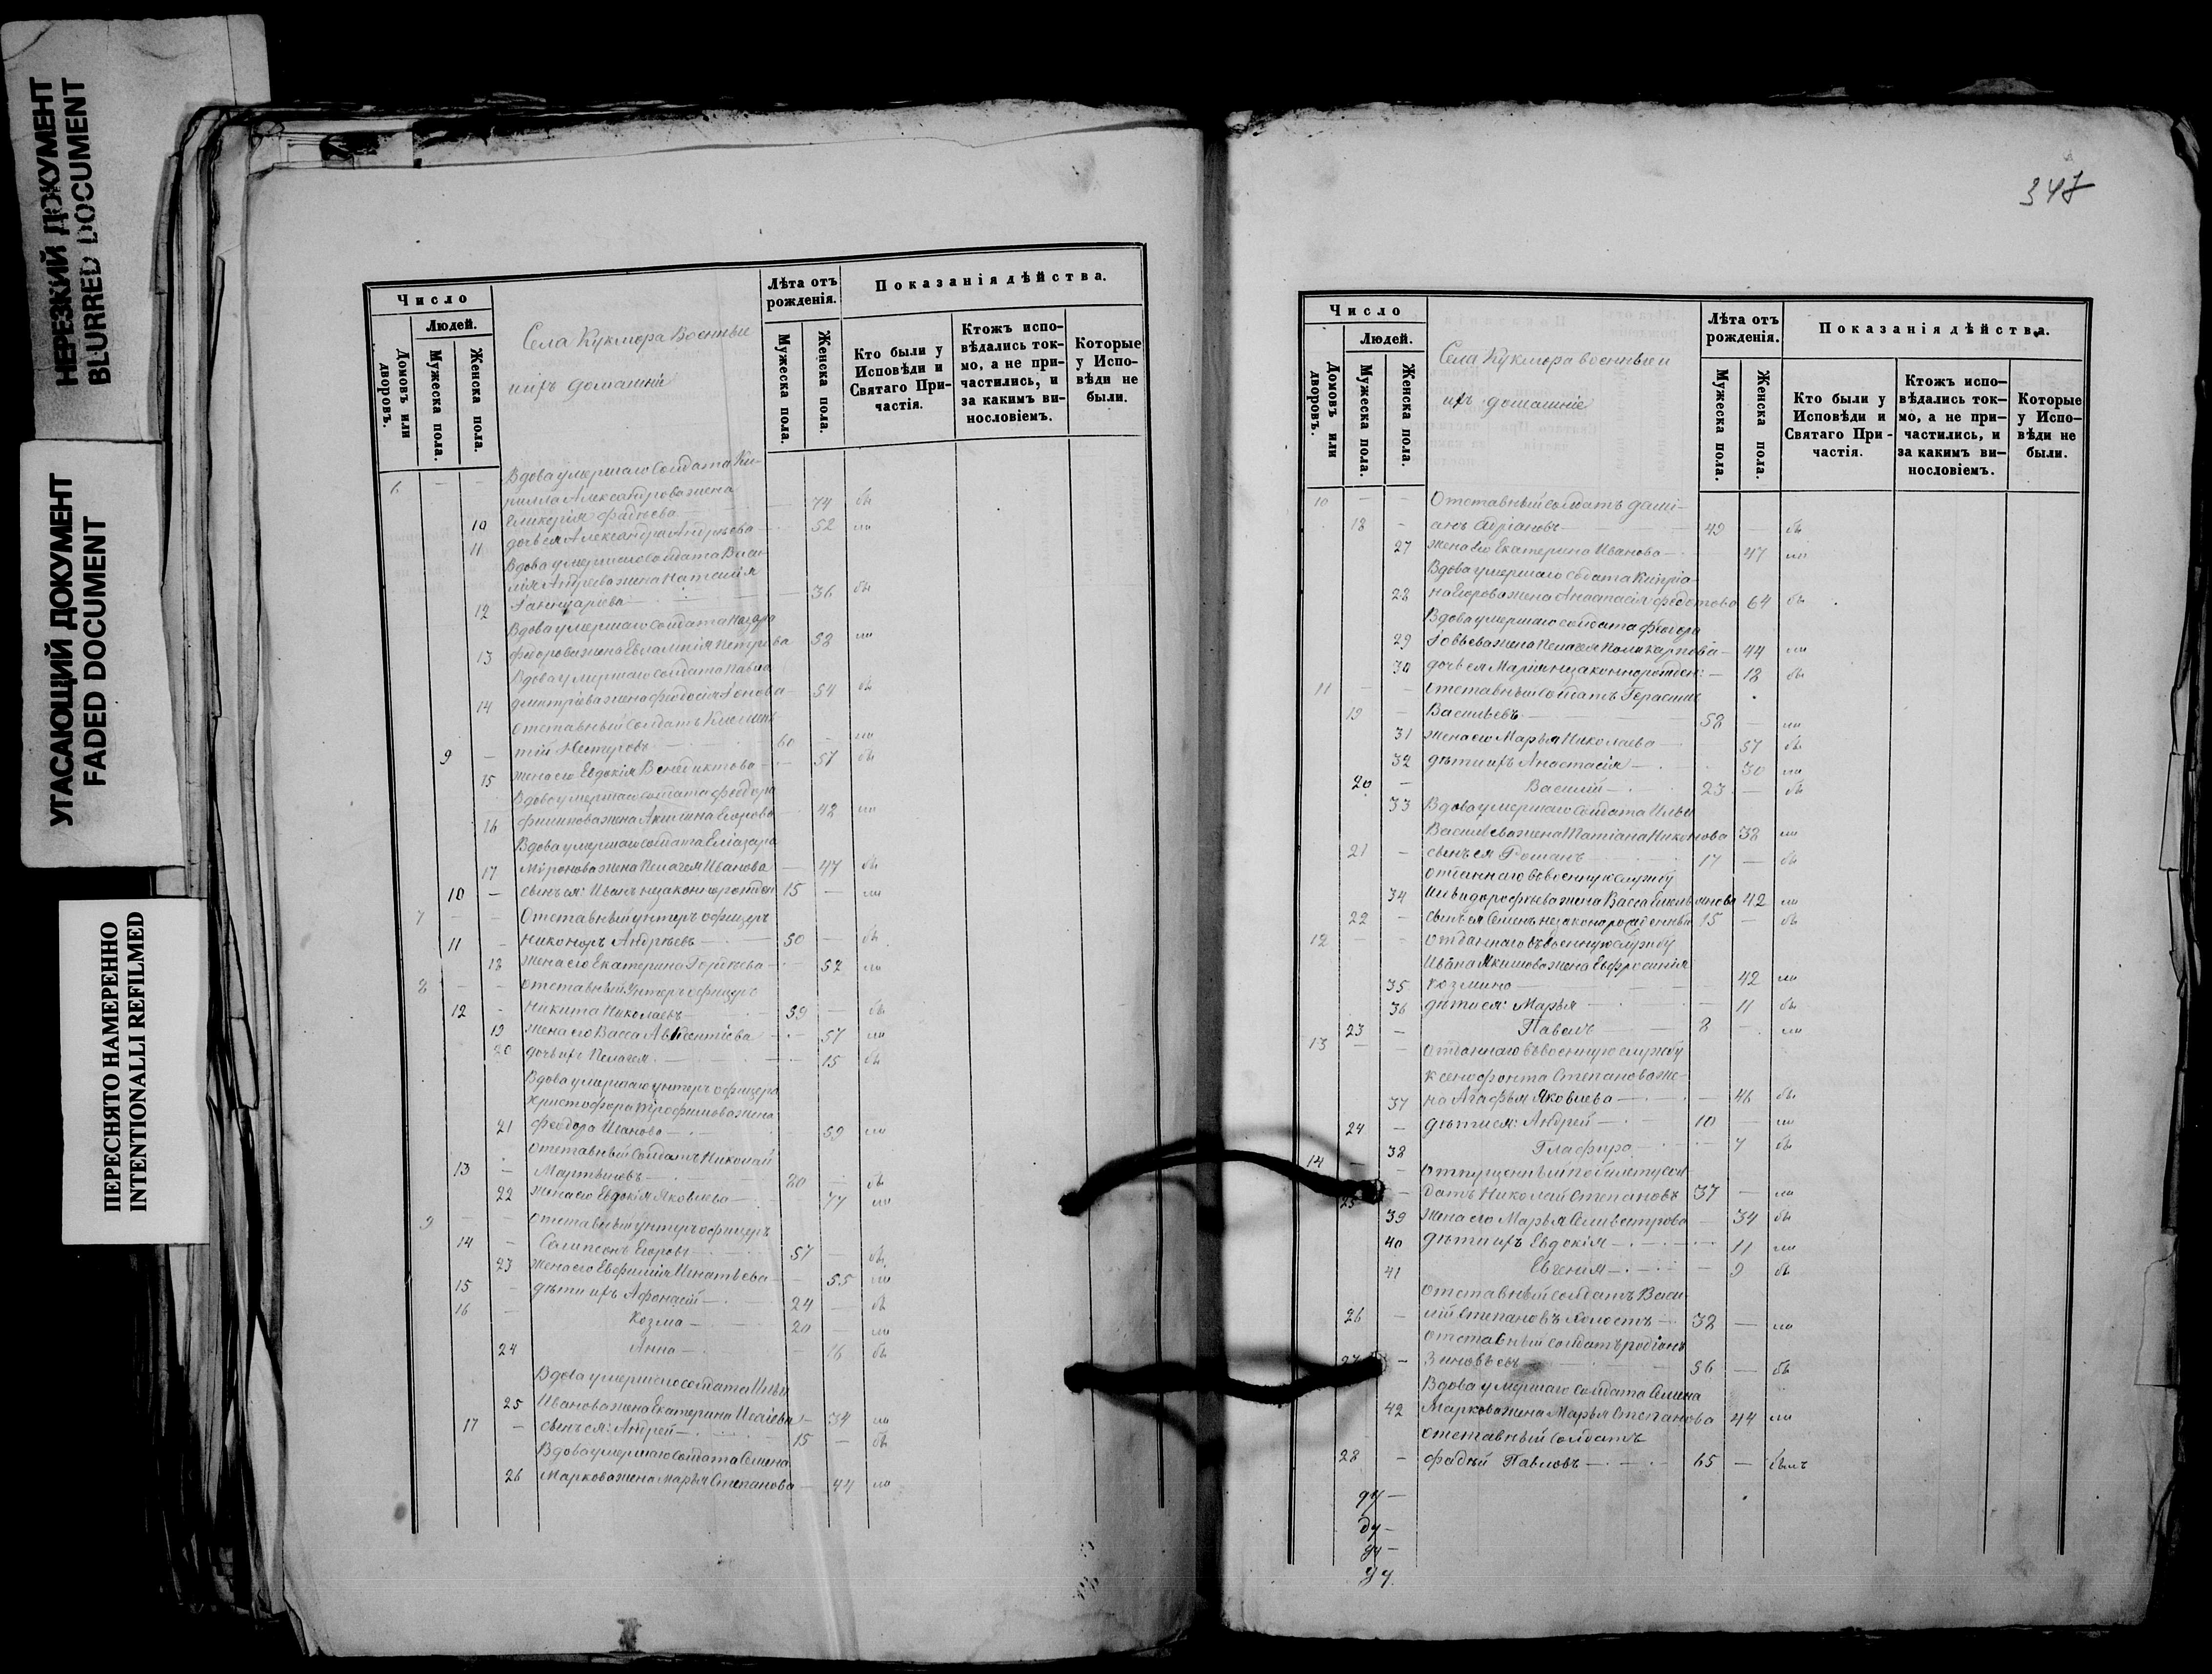 НЕРЕЗКИЙ ДОКУМЕНТ
BLURRED DOCUMENT
УГАСАЮЩИЙ ДОКУМЕНТ
FADED DOCUMENT
ПЕРЕСНЯТО НАМЕРЕННО
INTENTIONALLI REFILMED
Число
Людей.
Домовъ или дворовъ.
Мужеска пола.
Женска пола.
Села Кукмора Военные
ихъ домашніе
Лѣта отъ рожденія.
Мужеска пола.
Женска пола.
Показанія дѣйства.
Кто были у Исповѣди и Святаго Причастія.
Ктожъ исповѣдались токмо, а не причастились, и за какимъ винословіемъ.
Которые у Исповѣди не были.
6 — — Вдова умершаго Солдата Ки-
рилла Александрова жена
10 Гликерія Фадѣева — 74 бы
11 дочь ея Александра Андрѣева — 52 ла
Вдова умершаго Солдата Васи-
лія Андреева жена Наталія
12 — 36 бы
Вдова умершаго Солдата Назара
13 Федорова жена Евлампія Петрова 52 ла
Вдова умершаго солдата Павла
14 Дмитріева жена Феодосія — 54 бы
Отставный Солдатъ Климен-
9 — тій Нестеровъ — 60 — ла
15 жена его Евдокія Венедиктова — 57 бы
Вдова умершаго солдата Феодора
16 Филипова жена Акилина Егорова 42 ла
Вдова умершаго солдата Еліазара
17 Миронова жена Пелагея Иванова — 47 бы
10 — сынъ ея: Иванъ незаконнорожден 15 — ла
7 — — Отставный унтеръ офицеръ
11 — Никоноръ Андрѣевъ — 50 — бы
18 жена его Екатерина Гордѣева — 52 ла
8 — — Отставный Унтеръ офицеръ
12 — Никита Николаевъ — 59 — бы
19 жена его Васса Авксентіева — 57 ла
20 дочь ихъ Пелагея — 15 бы
Вдова умершаго унтеръ офицера
Христофора Трофимова жена
21 Феодора Иванова — 59 ла
Отставный Солдатъ Николай
13 — Мартыновъ — 80 — бы
22 жена его Евдокія Яковлева — 77 ла
9 — — Отставный унтеръ офицеръ
14 — Сампсонъ Егоровъ — 57 — бы
23 жена его Евфимія Игнатьева — 55 ла
15 — дѣти ихъ Афонасій — 24 — бы
16 — Козма — 20 — ла
24 Анна — 16 бы
Вдова умершаго солдата Ильи
25 Иванова жена Екатерина Исаіева — 34 ла
17 — сынъ ея: Андрей — 15 — бы
Вдова умершаго Солдата Семена
26 Маркова жена Марья Степанова — 44 ла
347
Число
Людей.
Домовъ или дворовъ.
Мужеска пола.
Женска пола.
Села Кукмора военные и
ихъ домашніе
Лѣта отъ рожденія.
Мужеска пола.
Женска пола.
Показанія дѣйства.
Кто были у Исповѣди и Святаго Причастія.
Ктожъ исповѣдались токмо, а не причастились, и за какимъ винословіемъ.
Которые у Исповѣди не были.
10 — — Отставный солдатъ Даміанъ
18 — Адріановъ — 49 — бы
27 жена его Екатерина Иванова — 47 ла
Вдова умершаго Солдата Кипріа-
28 на Егорова жена Анастасія Федотова 64 бы
Вдова умершаго солдата Феодора
29 жена Пелагея Поликарпова — 44 ла
30 дочь ея Марія незаконнорожден: — 12 бы
11 — — Отставный Солдатъ Герасимъ
19 — Васильевъ — 58 — ла
31 жена его Марья Николаева — 57 бы
32 дѣти ихъ Анастасія — 30 ла
20 — Василій — 23 — бы
33 Вдова умершаго Солдата Ильи
Васильева жена Татіана Никонова 38 ла
21 — сынъ ея Романъ 17 — бы
Отданнаго въ военную службу
34 жена Васса 42 ла
22 — сынъ ея Семенъ незаконорожденный 15 — бы
12 — — Отданнаго въ военную службу
Ивана Якимова жена Евфросинія
35 Козмина — 42 ла
36 дѣти ея: Марья — 11 бы
23 — Павелъ — 8 — ла
13 — — Отданнаго въ военную службу
Ксенофонта Степанова же-
37 на Агафья Яковлева — 46 бы
24 — дѣти ея: Андрей — 10 — ла
38 Глафира — 7 бы
14 — — Отпущенный по билету Сол-
25 — датъ Николай Степановъ 37 — ла
39 жена его Марья Селивестрова — 34 бы
40 дѣти ихъ Евдокія — 11 ла
41 Евгенія — 9 бы
Отставный солдатъ Васи-
26 — лій Степановъ Холостъ — 38 — ла
Отставный солдатъ Родіонъ
27 — Зиновьевъ — 56 — бы
Вдова умершаго Солдата Семена
42 Маркова жена Марья Степанова 44 ла
Отставный Солдатъ
28 — Фадѣй Павловъ — 65 — былъ